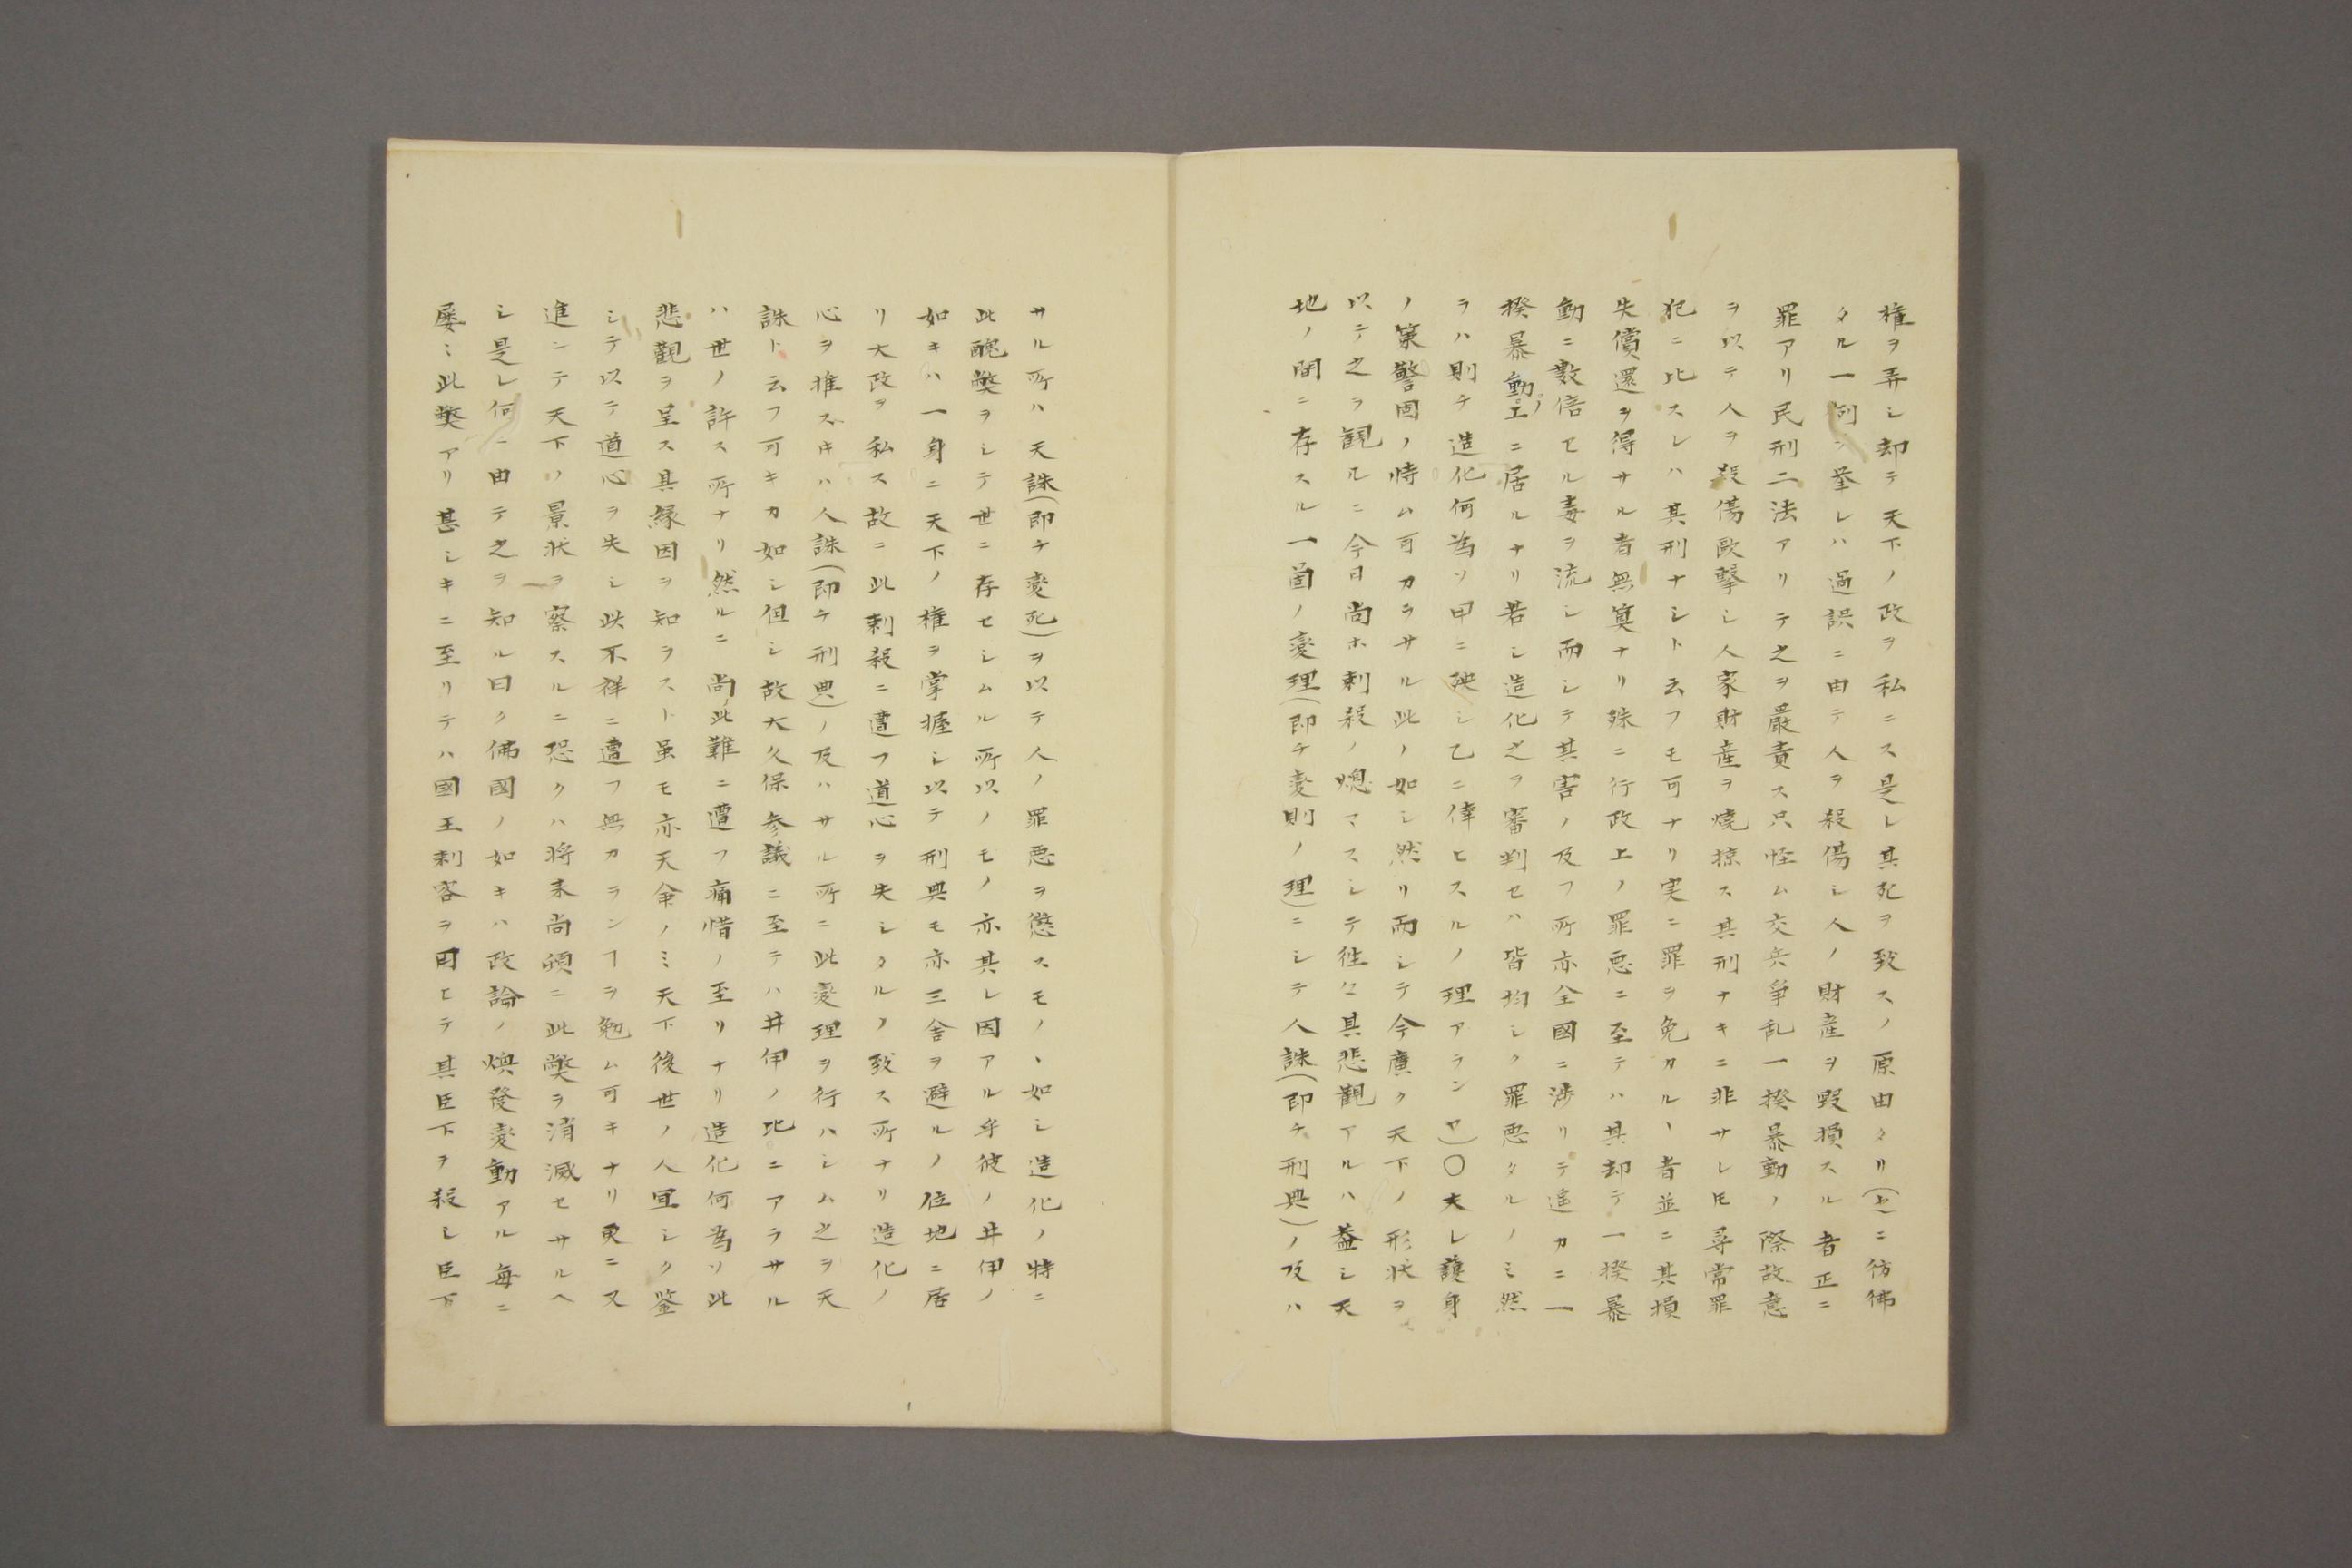 権ヲ弄シ却テ天下ノ政ヲ私ニス是レ其死ヲ致スノ原由タリ(七)ニ彷彿
タル一例ヲ挙レハ過誤ニ由テ人ヲ殺傷シ人ノ財産ヲ毀損スル者正ニ
罪アリ民刑二法アリテ之ヲ嚴責ス只怪ム交兵争乱一揆暴動ノ際故意
ヲ以テ人ヲ殺傷歐撃シ人家財産ヲ燒掠ス其刑ナキニ非サレ𪜈尋常罪
犯ニ比スレハ其刑ナシト云フモ可ナリ実ニ罪ヲ免カルヽ者並ニ其損
失償還ヲ得サル者無算ナリ殊ニ行政上ノ罪悪ニ至テハ其却テ一揆暴
動ニ數倍セル毒ヲ流シ而シテ其害ノ及フ所亦全國ニ渉リテ遙カニ一
揆暴動ノ上ニ居ルナリ若シ造化之ヲ審判セハ皆均シク罪悪タルノミ然
ラハ則チ造化何為ソ甲ニ殃シ乙ニ倖ヒスルノ理アランヤ)〇夫レ護身
ノ策警固ノ恃ム可カラサル此ノ如シ然リ而シテ今廣ク天下ノ形状ヲ
以テ之ヲ観ルニ今日尚ホ刺殺ノ熄マスシテ徃々其悲観アルハ蓋シ天
地ノ間ニ存スル一箇ノ変理(即チ変則ノ理)ニシテ人誅(即チ刑典)ノ及ハ
サル所ハ天誅(即チ変死)ヲ以テ人ノ罪悪ヲ懲スモノヽ如シ造化ノ特ニ
此醜弊ヲシテ世ニ存セシムル所以ノモノ亦其レ因アル乎彼ノ井伊ノ
如キハ一身ニ天下ノ権ヲ掌握シ以テ刑典モ亦三舎ヲ避ルノ位地ニ居
リ大政ヲ私ス故ニ此刺殺ニ遭フ道心ヲ失シタルノ致ス所ナリ造化ノ
心ヲ推スキハ人誅(即チ刑典)ノ及ハサル所ニ此変理ヲ行ハシム之ヲ天
誅ト云フ可キカ如シ但シ故大久保参議ニ至テハ井伊ノ比ニアラサル
ハ世ノ許ス所ナリ然ルニ尚此難ニ遭フ痛惜ノ至リナリ造化何為ソ此
悲觀ヲ呈ス其縁因ヲ知ラスト虽モ亦天命ノミ天下後世ノ人宜シク鉴
シテ以テ道心ヲ失シ此不祥ニ遭フ無カランヿヲ勉ム可キナリ更ニ又
進ンテ天下ノ景状ヲ察スルニ恐クハ将来尚頻ニ此弊ヲ消滅セサルヘ
シ是レ何ニ由テ之ヲ知ル曰ク佛國ノ如キハ政論ノ煥發変動アル毎ニ
屡ミ此弊アリ甚シキニ至リテハ國王刺客ヲ用ヒテ其臣下ヲ殺シ臣下